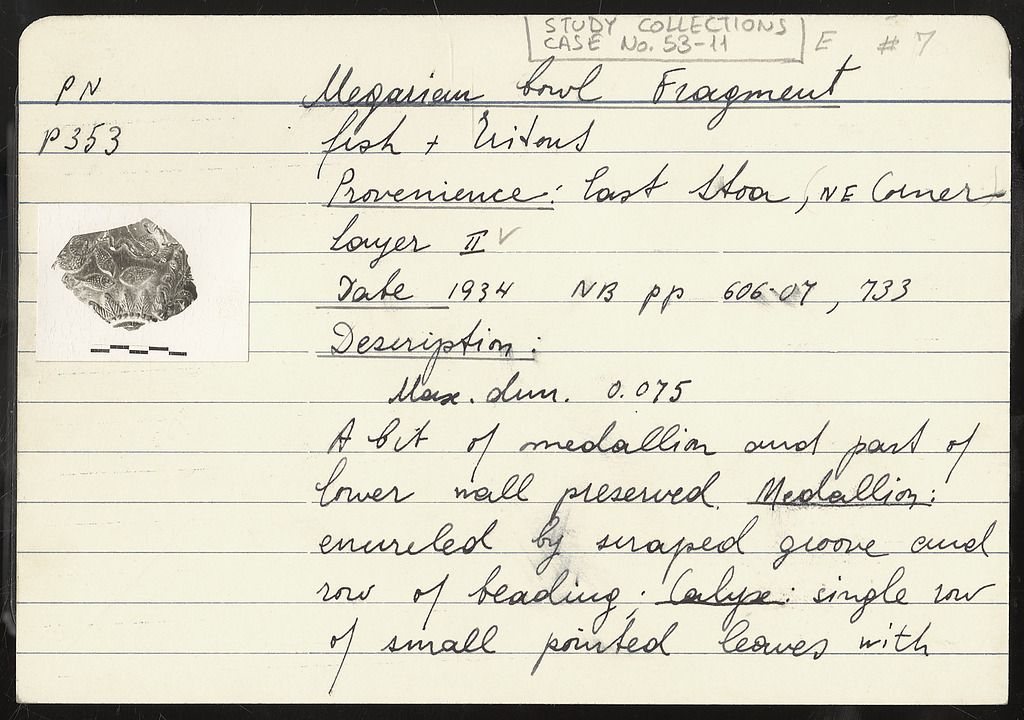 STUDY COLLECTIONS
CASE No. 53-11 E # 7
PN Megarian bowl Fragment
P353 fish + Tritons
Provenience: East Stoa, NE Corner
layer II ✓
Date 1934 NB pp 606-07, 733
Description:
Max. dim. 0.075
A bit of medallion and part of
lower wall preserved. Medallion:
encircled by scraped groove and
row of beading; Calyx: single row
of small pointed leaves with